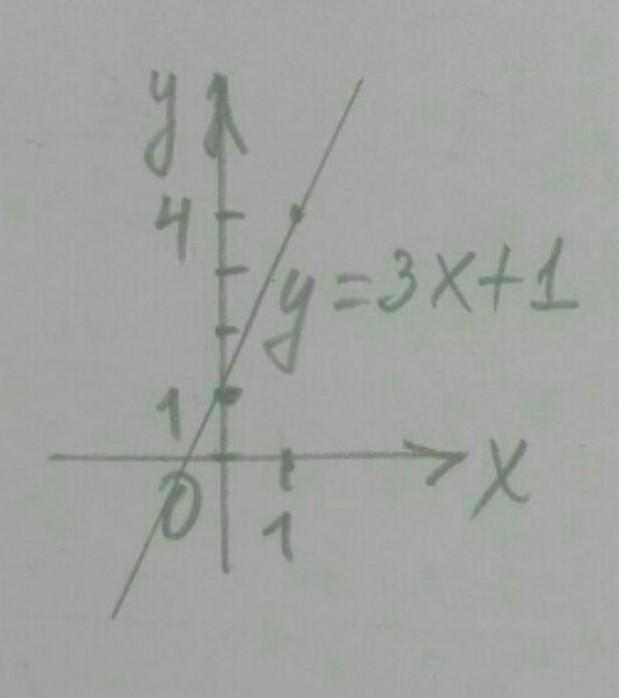 y
4
y=3x+1
1
x
0
1